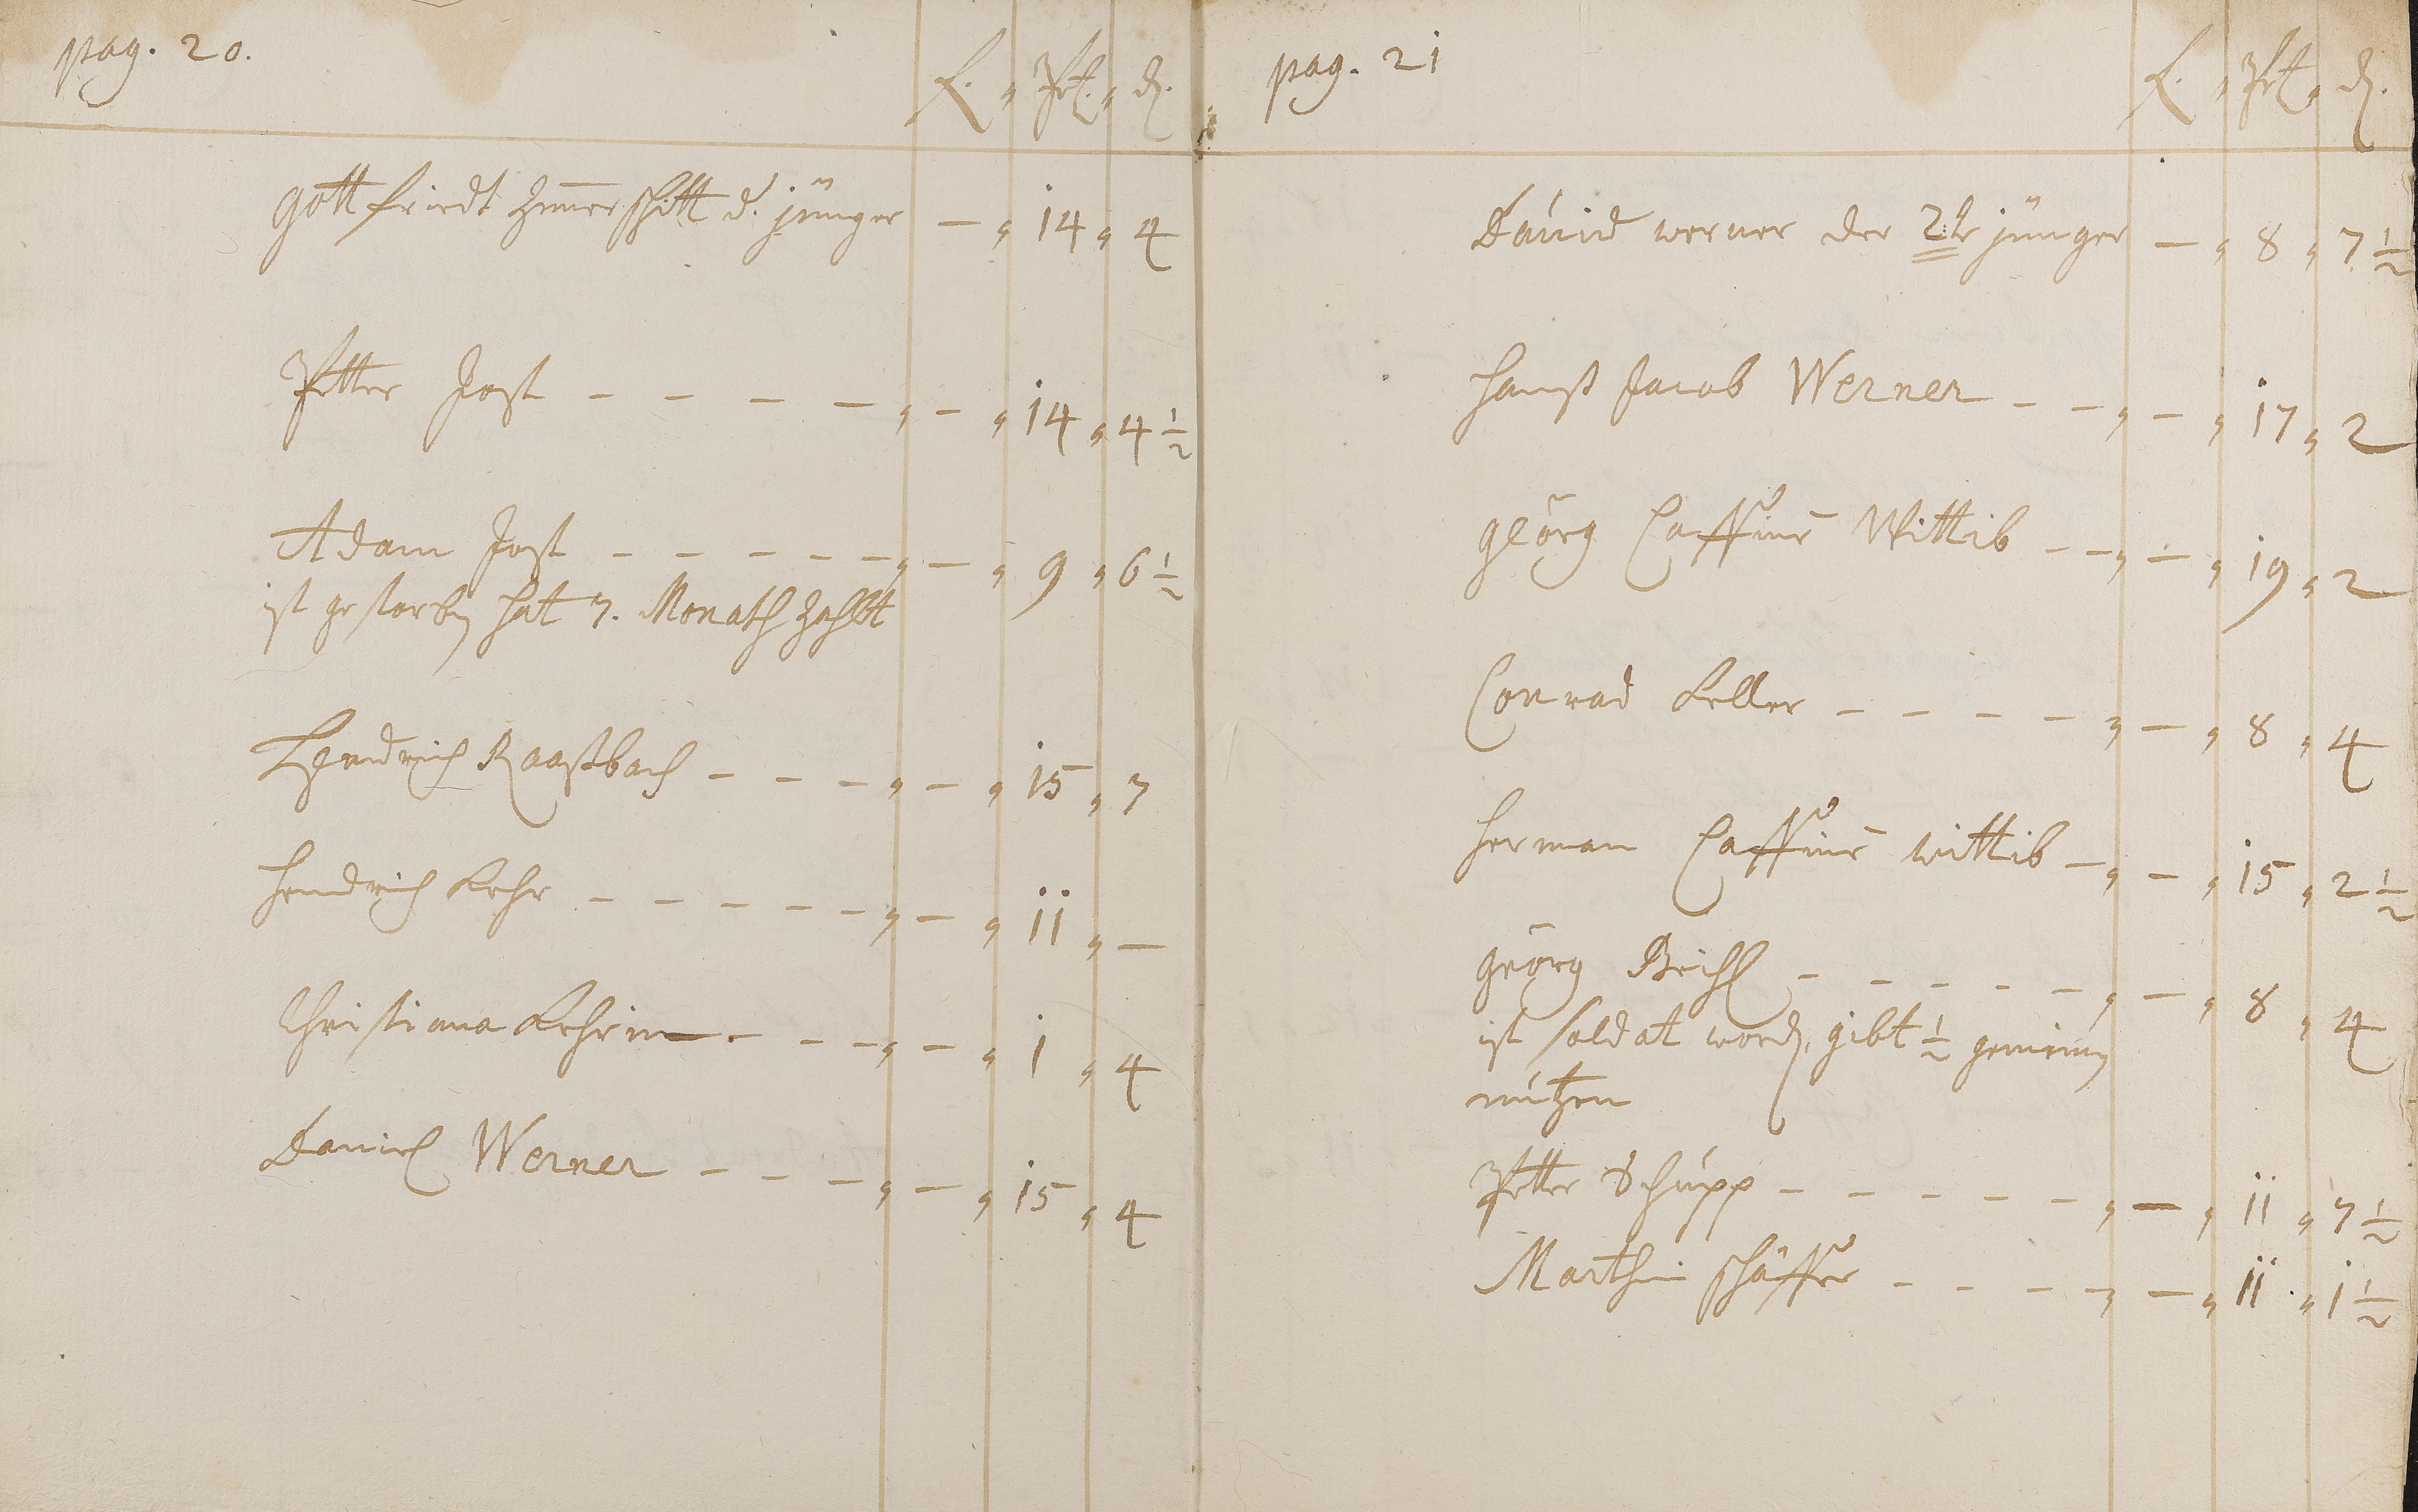 pag. 20.
f. " Pet. " d.
Gottfriedt Zimerschitt d. jünger — " 14 " 4
Petter Jost — — — — " — " 14 " 4 1/2
Adam Jost — — — — — " — " 9 " 6 1/2
ist gestorben hat 7. Monath zahlt
Hendrich Raaßbach — — — " — " 15 " 7
Hendrich Kehr — — — — — " — " 11 " —
Christiana Kehrin — — — " — " 1 " 4
Daniel Werner — — — " — " 15 " 4
pag. 21
f. " Pet. " d.
David werner der 2te jünger — " 8 " 7 1/2
Hanß Jacob Werner — — " — " 17 " 2
Geörg Wittib — — " — " 19 " 2
Conrad Keller — — — — " — " 8 " 4
Herman wittib — " — " 15 " 2 1/2
Geörg Briehl — — — — — " — " 8 " 4
ist soldat word, gibt 1/2 gemeinen
nutzen
Petter Schupp — — — — — " — " 11 " 7 1/2
Marthin schäffer — — — — " — " 11 " 1 1/2